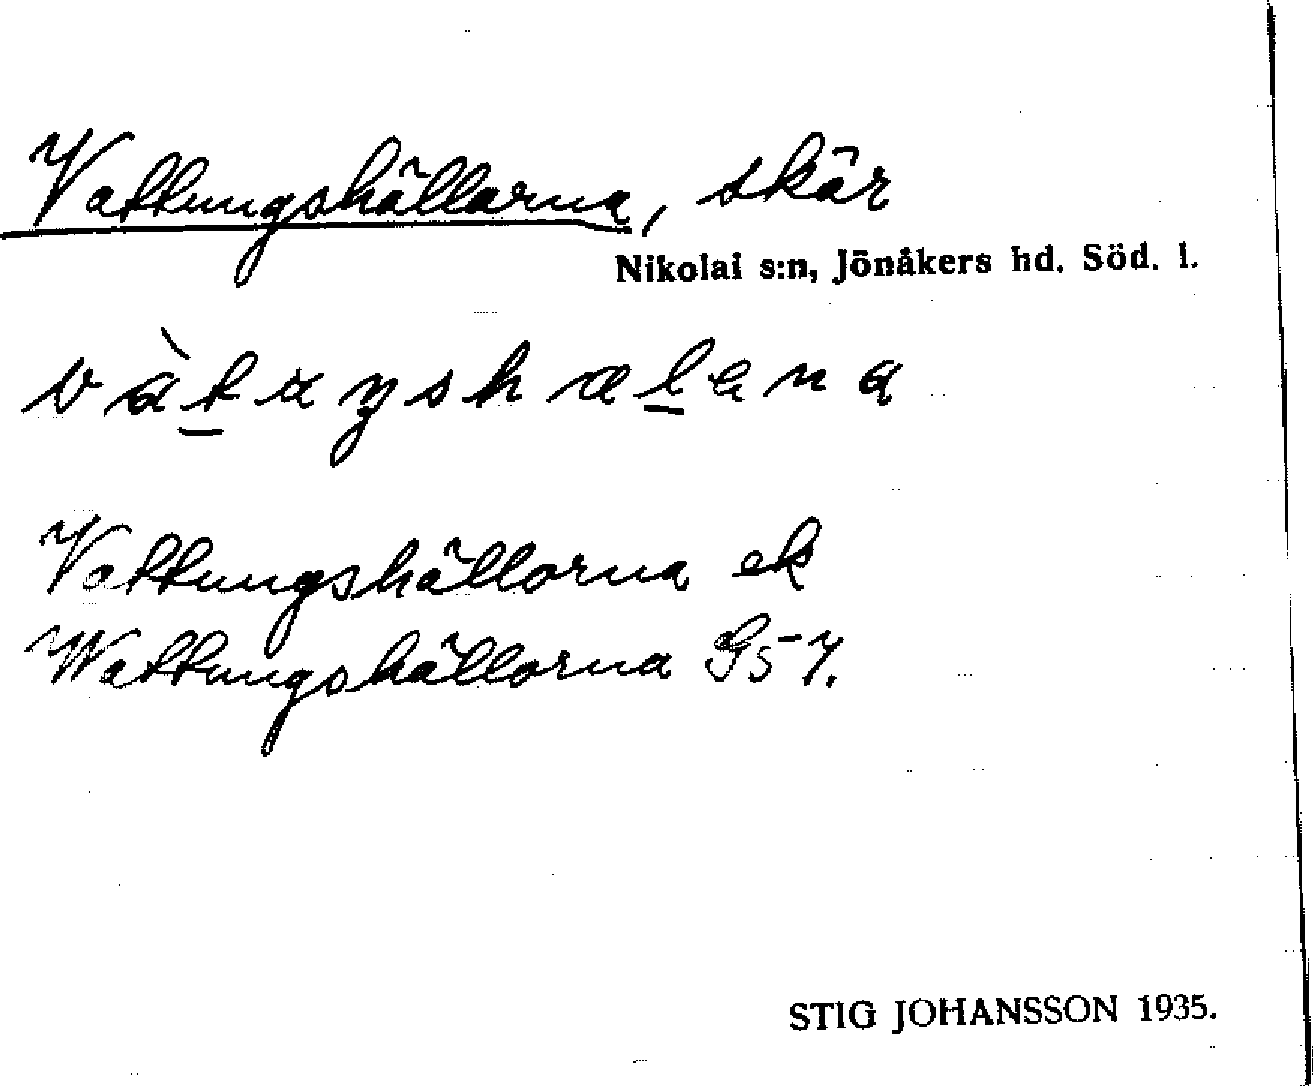 Vattungshällarna, skär
Nikolai s:n, Jönåkers hd. Söd. l.
Vattungshällorna ek
Wattungshällorna G57.
STIG JOHANSSON 1935.